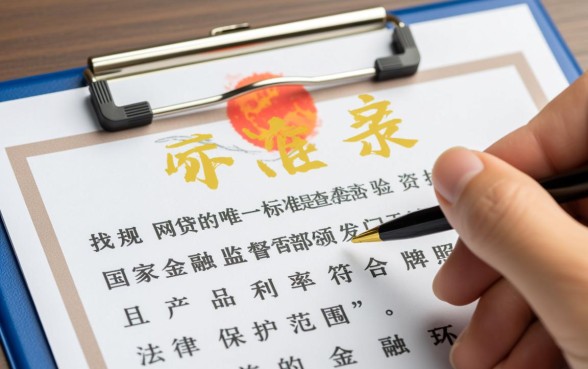 准
找规 网贷的唯一标准是查 验 资
国家金融监督 部颁发门
且产品利率符合牌照
法律 保护范围”。
的 金 融 环